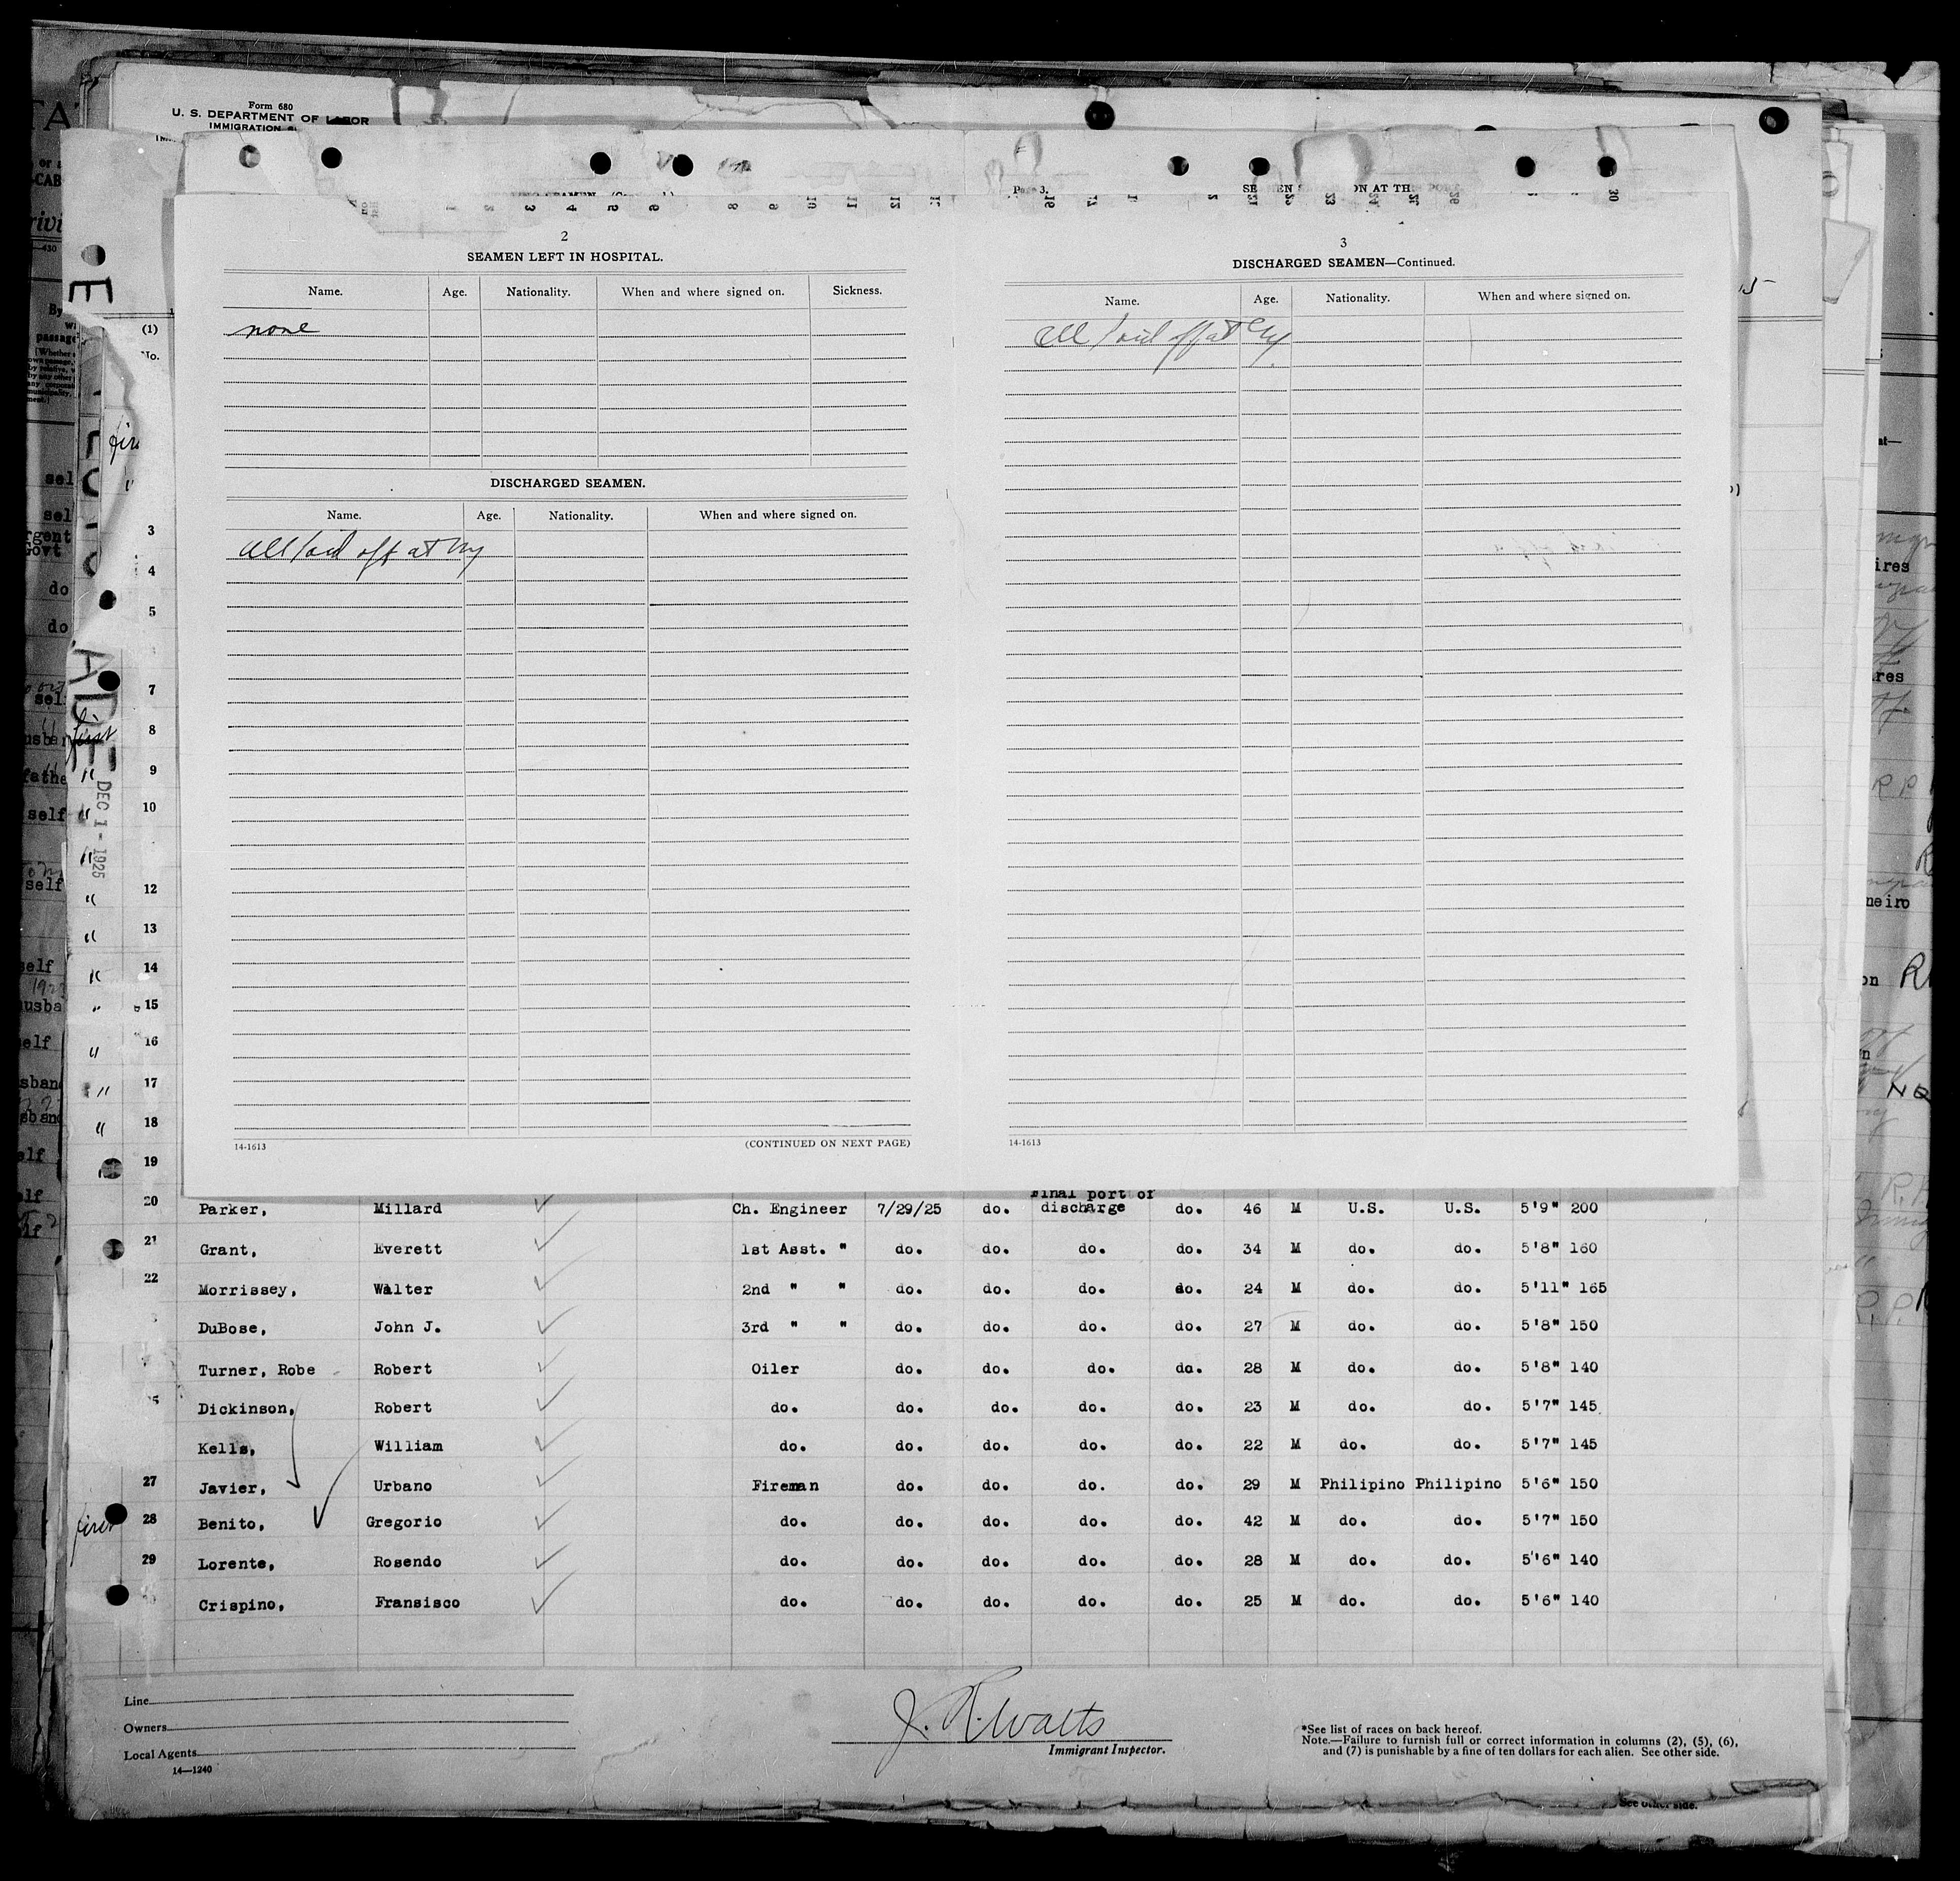 Form 680
U. S. DEPARTMENT OF LABOR
IMMIGRATION
2
SEAMEN LEFT IN HOSPITAL.
Name. Age. Nationality. When and where signed on. Sickness.
none
DISCHARGED SEAMEN.
Name. Age. Nationality. When and where signed on.
all paid off at ny
14-1613 (CONTINUED ON NEXT PAGE)
3
DISCHARGED SEAMEN—Continued.
Name. Age. Nationality. When and where signed on.
all paid off at ny
14-1613
(1)
No.
3
4
5
7
8
9
10
12
13
14
15
16
17
18
19
DEC 1 - 1925
Final port of
20 Parker, Millard Ch. Engineer 7/29/25 do. discharge do. 46 M U.S. U.S. 5'9" 200
21 Grant, Everett 1st Asst. " do. do. do. do. 34 M do. do. 5'8" 160
22 Morrissey, Walter 2nd " " do. do. do. do. 24 M do. do. 5'11" 165
DuBose, John J. 3rd " " do. do. do. do. 27 M do. do. 5'8" 150
Turner, Robe Robert Oiler do. do. do. do. 28 M do. do. 5'8" 140
Dickinson, Robert do. do. do. do. do. 23 M do. do. 5'7" 145
Kells, William do. do. do. do. do. 22 M do. do. 5'7" 145
27 Javier, Urbano Fireman do. do. do. do. 29 M Philipino Philipino 5'6" 150
first 28 Benito, Gregorio do. do. do. do. do. 42 M do. do. 5'7" 150
29 Lorente, Rosendo do. do. do. do. do. 28 M do. do. 5'6" 140
Crispino, Fransisco do. do. do. do. do. 25 M do. do. 5'6" 140
Line
Owners
Local Agents
14—1240
J. R. Watts
Immigrant Inspector.
*See list of races on back hereof.
Note.—Failure to furnish full or correct information in columns (2), (5), (6),
and (7) is punishable by a fine of ten dollars for each alien. See other side.
See other side.